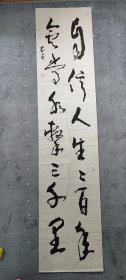 自信人生二百年
会当水击三千里